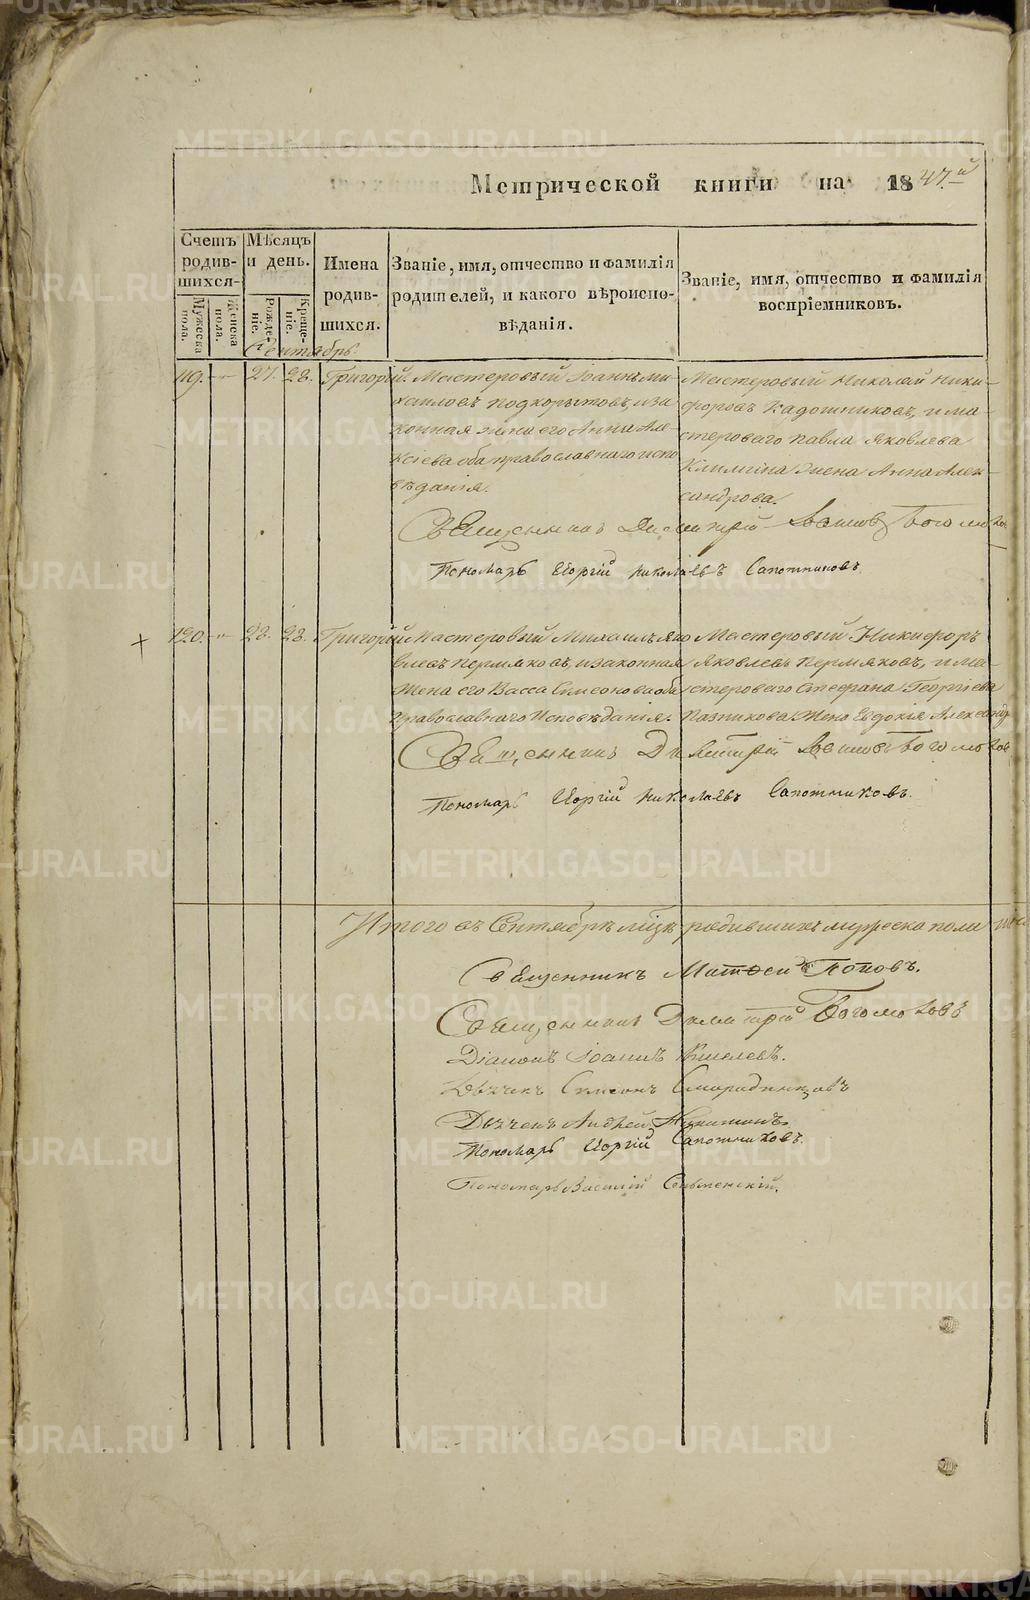 Метрической книги на 1847.й
Счетъ родившихся
Мѣсяцъ и день.
Имена родившихся.
Званіе, имя, отчество и фамилія родителей, и какого вѣроисповѣданія.
Званіе, имя, отчество и фамилія воспріемниковъ.
Мужеска пола.
Женска пола.
Рожденіе.
Крещеніе.
Сентябрь.
119. 27. 28. Григорій.
Мастеровый Іоаннъ Ми-
хаиловъ Подкорытовъ, и за
конная жена его Анна Але-
ксіева оба православнаго испо
вѣданія.
Мастеровый Николай Ники-
форовъ Кадошниковъ, и ма-
стероваго Павла Яковлева
жена Анна Алек-
сандрова.
Священникъ Димитрій Богомолов
Пономарь Георгій Николаевъ Сапожниковъ.
120. 28. 28. Григорій
Мастеровый Михаилъ Яко
влевъ Пермяковъ, и законная
жена его Васса Симеонова оба
православнаго Исповѣданія.
Мастеровый Никифоръ
Яковлевъ Пермяковъ, и ма-
стероваго Стефана Георгіева
жена Евдокія Александр
Священникъ Димитрій Богомолов
Пономарь Георгій Николаевъ Сапожниковъ.
Итого въ Сентябрѣ м-цѣ родившихъ мужеска пола
Священникъ Матѳеи Поповъ.
Священникъ Димитрій Богомоловъ
Діаконъ Іоаннъ Киселевъ.
Дьячекъ Симеонъ Смородинцовъ
Дьячекъ Андрей
Пономарь Георгій Сапожниковъ.
Пономарь Василій
METRIKI.GASO-URAL.RU